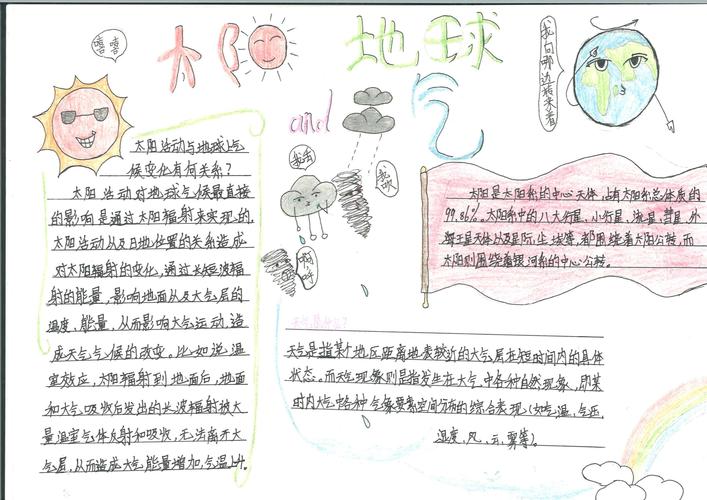 太阳 地球
and 天气
嘻嘻
我向哪边转来着
太阳活动与地球气
候变化有何关系？
太阳活动对地球气候最直接
的影响是通过太阳辐射来实现的，
太阳活动以及日地位置的关系造成
对太阳辐射的变化，通过长短波辐
射的能量，影响地面以及大气层的
温度，能量，从而影响大气运动，造
成天气气候的改变。比如说温
室效应，太阳辐射到地面后，地面
和大气吸收后发出的长波辐射被大
量温室气体反射和吸收，无法离开大
气层，从而造成大气能量增加，气温上升。
我吹
啊呀
太阳是太阳系的中心天体，占有太阳系总体质的
99.86%。太阳系中的八大行星、小行星、流星、彗星、外
海王星天体以及星际尘埃等，都围绕着太阳公转，而
太阳则围绕着银河系的中心公转。
天气是什么？
天气是指某个地区距离地表较近的大气层在短时间内的具体
状态。而天气现象则是指发生在大气中各种自然现象，即某
时内大气中各种气象要素空间分布的综合表现(如气温、气压、
湿度、风、云、雾等)。